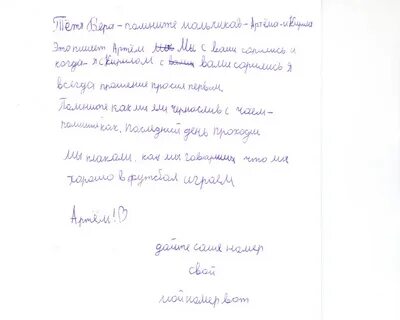 Тётя Вера - помните мальчиков - Артёма и Кирила
Это пишет Артём Мы с вами сорились и
когда я с Кирилом с вами сорились я
всегда прошение просил первым.
Помните как мы ели чернослив с чаем
помните как. Последний день проходи
мы плакали, как мы говарили что мы
хорошо в футбол играем
Артём!♡
дайте саше номер
свой
мой номер вот